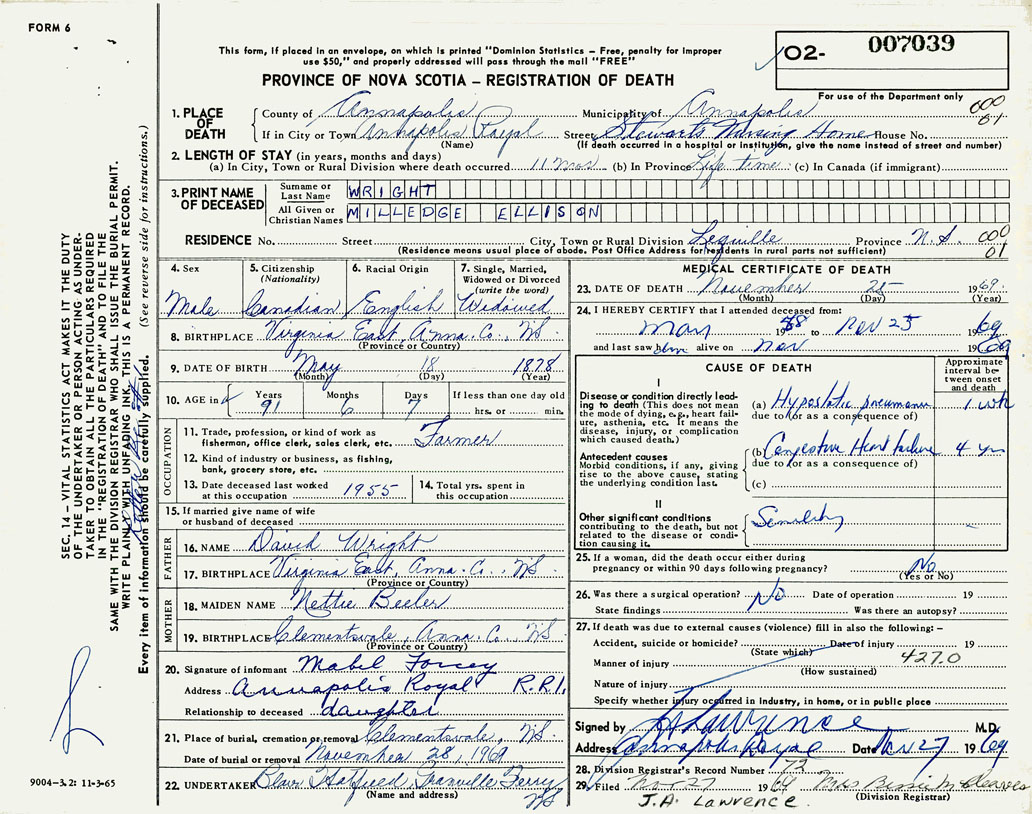 FORM 6
This form, if placed in an envelope, on which is printed "Dominion Statistics – Free, penalty for improper
use $50," and properly addressed will pass through the mail "FREE"
PROVINCE OF NOVA SCOTIA – REGISTRATION OF DEATH
O2- 007039
For use of the Department only
000
01
1. PLACE OF DEATH
County of Annapolis Municipality of Annapolis
If in City or Town Annapolis Royal Street Stewarts Nursing Home House No.
(Name) (If death occurred in a hospital or institution, give the name instead of street and number)
2. LENGTH OF STAY (in years, months and days)
(a) In City, Town or Rural Division where death occurred 11 Mos (b) In Province Life time (c) In Canada (if immigrant)
3. PRINT NAME OF DECEASED
Surname or Last Name WRIGHT
All Given or Christian Names MILLEDGE ELLISON
RESIDENCE No. Street City, Town or Rural Division Lequille Province N.S. 000
(Residence means usual place of abode. Post Office Address for residents in rural parts not sufficient) 01
4. Sex 5. Citizenship (Nationality) 6. Racial Origin 7. Single, Married, Widowed or Divorced (write the word)
Male Canadian English Widowed
8. BIRTHPLACE Virginia East, Anna. Co., NS
(Province or Country)
9. DATE OF BIRTH May 18 1878
(Month) (Day) (Year)
10. AGE in Years Months Days If less than one day old
91 6 7 hrs. or min.
OCCUPATION
11. Trade, profession, or kind of work as fisherman, office clerk, sales clerk, etc. Farmer
12. Kind of industry or business, as fishing, bank, grocery store, etc.
13. Date deceased last worked at this occupation 1955 14. Total yrs. spent in this occupation
15. If married give name of wife or husband of deceased
FATHER
16. NAME David Wright
17. BIRTHPLACE Virginia East, Anna. Co., NS
(Province or Country)
MOTHER
18. MAIDEN NAME Nettie Beeler
19. BIRTHPLACE Clementsvale, Anna. Co. NS
(Province or Country)
20. Signature of informant Mabel Forcey
Address Annapolis Royal R.R.1.
Relationship to deceased daughter
21. Place of burial, cremation or removal Clementsvale, NS.
Date of burial or removal November 28, 1969
22. UNDERTAKER Blair Hatfield, Granville Ferry
(Name and address) NS
MEDICAL CERTIFICATE OF DEATH
23. DATE OF DEATH November 25 1969
(Month) (Day) (Year)
24. I HEREBY CERTIFY that I attended deceased from:
May 1968 to Nov 25 1969
and last saw him alive on Nov 1969
CAUSE OF DEATH
Approximate interval between onset and death
I
Disease or condition directly leading to death (This does not mean the mode of dying, e.g., heart failure, asthenia, etc. It means the disease, injury, or complication which caused death.)
(a) Hypostatic pneumonia 1 wk
due to (or as a consequence of)
Antecedent causes
Morbid conditions, if any, giving rise to the above cause, stating the underlying condition last.
(b) Congestive Heart failure 4 yrs
due to (or as a consequence of)
(c)
II
Other significant conditions contributing to the death, but not related to the disease or condition causing it.
Senility
25. If a woman, did the death occur either during pregnancy or within 90 days following pregnancy? No
(Yes or No)
26. Was there a surgical operation? No Date of operation 19
State findings Was there an autopsy?
27. If death was due to external causes (violence) fill in also the following: –
Accident, suicide or homicide? Date of injury 19
(State which)
Manner of injury 427.0
(How sustained)
Nature of injury
Specify whether injury occurred in industry, in home, or in public place
Signed by J A Lawrence M.D.
Address Annapolis Royal Date Nov 27 1969
28. Division Registrar's Record Number 73
29. Filed Nov 27 1969 Mrs Bessie M Cleaves
J.A. Lawrence (Division Registrar)
SEC. 14 – VITAL STATISTICS ACT MAKES IT THE DUTY
OF THE UNDERTAKER OR PERSON ACTING AS UNDER-
TAKER TO OBTAIN ALL THE PARTICULARS REQUIRED
IN THE "REGISTRATION OF DEATH" AND TO FILE THE
SAME WITH THE DIVISION REGISTRAR WHO SHALL ISSUE THE BURIAL PERMIT.
WRITE PLAINLY WITH UNFADING INK. THIS IS A PERMANENT RECORD.
Every item of information should be carefully supplied. (See reverse side for instructions.)
9004-3.2: 11-3-65